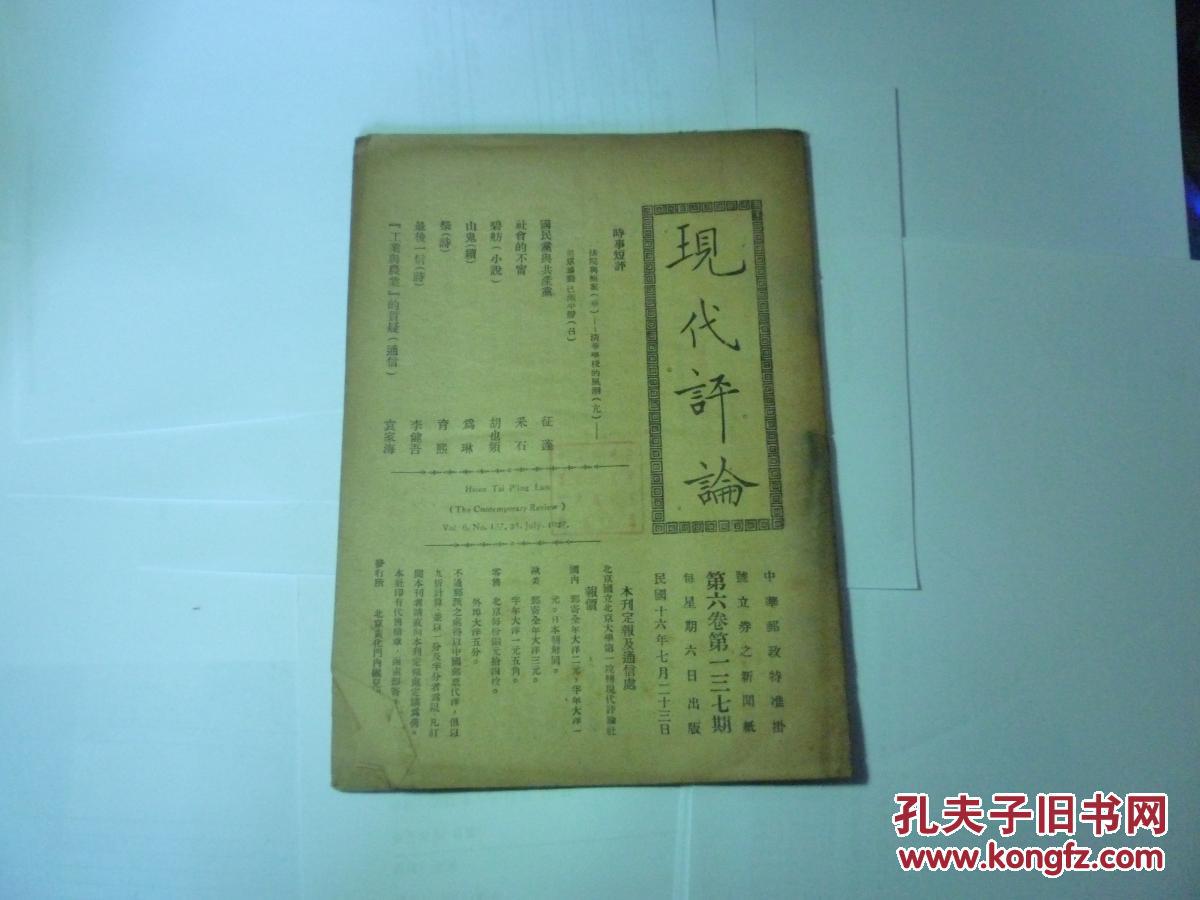 現代評論
中華郵政特准掛
號立券之新聞紙
第六卷第一三七期
每星期六日出版
民國十六年七月二十三日
時事短評
國民黨與共產黨 征蓬
社會的不甯 采石
碧舫(小說) 胡也頻
山鬼(續) 爲琳
祭(詩) 育熙
最後一信(詩) 李健吾
『工業與農業』的質疑(通信) 袁家海
Hsien Tai P'ing Lun
(The Contemporary Review)
Vol. 6, No. 137, 23, July, 1927.
本刊定報及通信處
北京國立北京大學第一院轉現代評論社
報價
國內 郵寄全年大洋二元,半年大洋一
元。日本朝鮮同。
歐美 郵寄全年大洋三元。
半年大洋一元五角。
零售 北京每份銅元拾四枚。
外埠大洋五分。
不通郵匯之處得以中國郵票代洋,但以
九折計算,並以一分及半分者爲限。凡訂
閱本刊者請直向本刊定報處定購爲荷。
發行所
孔夫子旧书网
www.kongfz.com